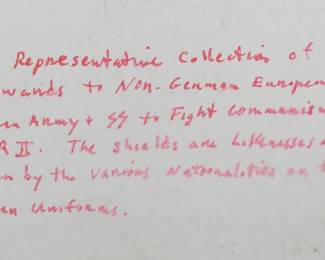 Representative Collection of
wards to Non-German Europea
en Army + SS to Fight Communism
R II. The shields are likenesses
n by the various Nationalities on t
en Uniforms.